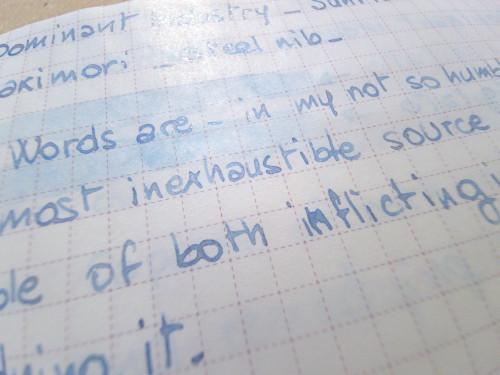 Dominant Industry -
akimori - steel nib -
Words are - in my not so humb
most inexhaustible source
ble of both inflicting
it.